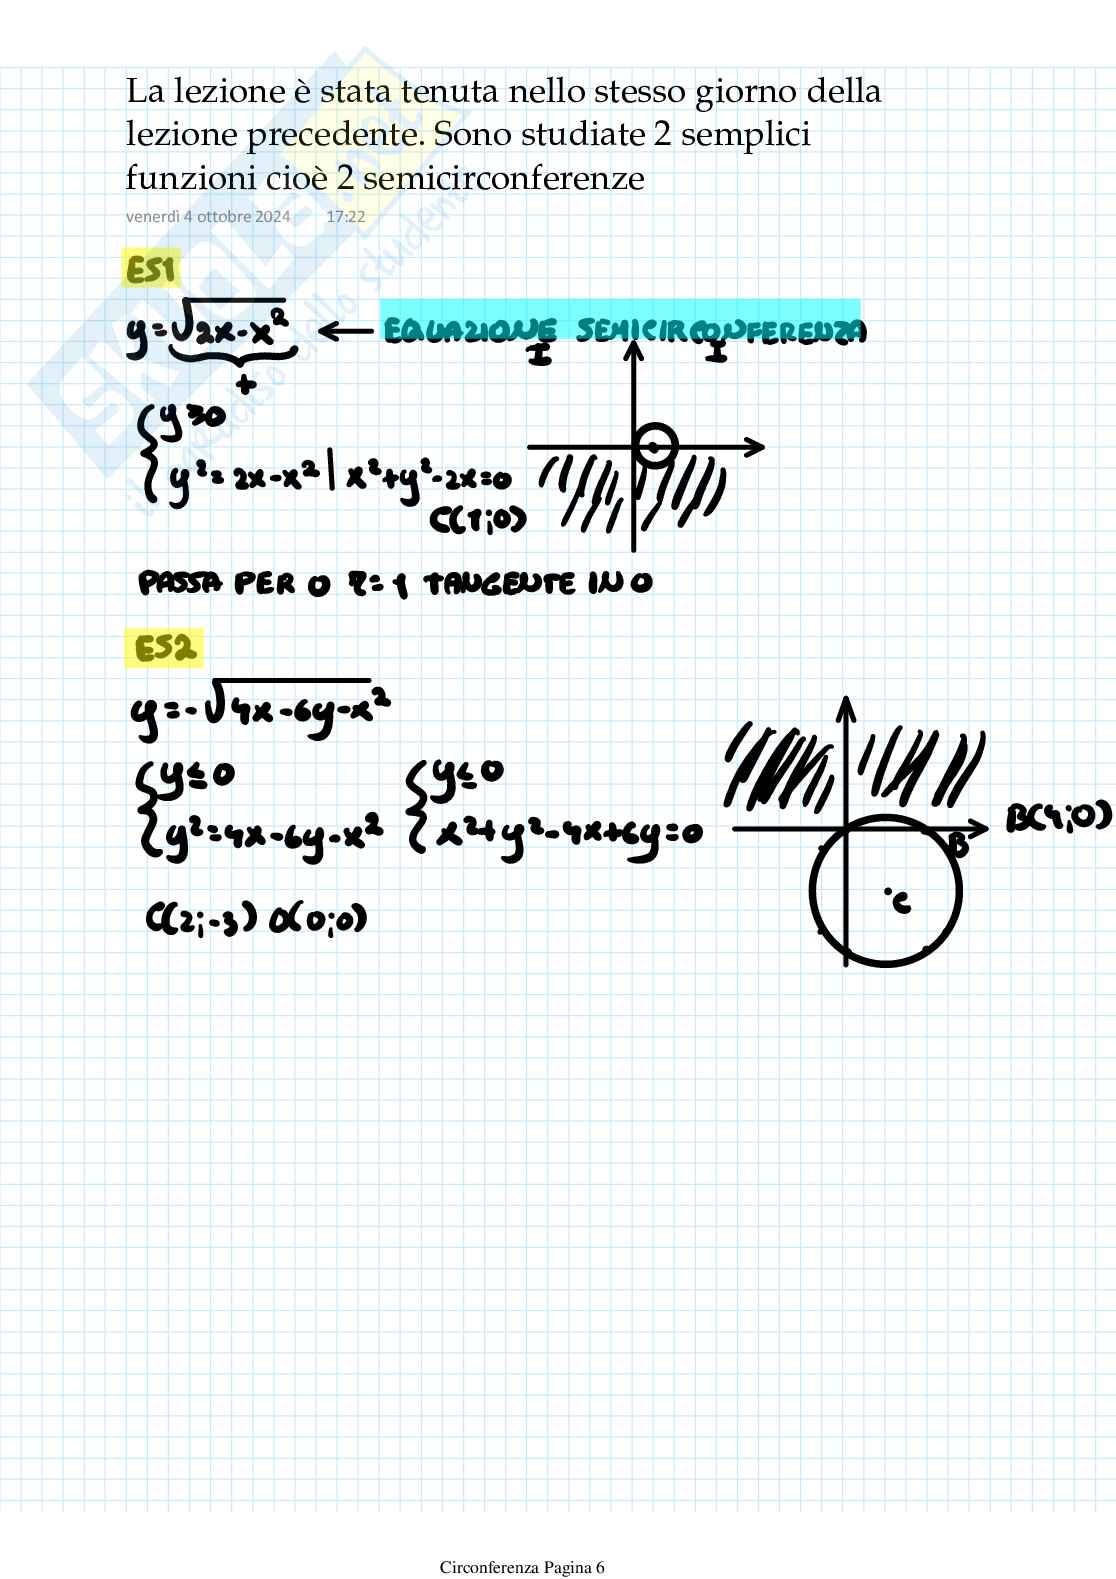 La lezione è stata tenuta nello stesso giorno della
lezione precedente. Sono studiate 2 semplici
funzioni cioè 2 semicirconferenze
venerdì 4 ottobre 2024 17:22
ES1
y=√2x-x² ← EQUAZIONE SEMICIRCONFERENZA
I I
+
{y≥0
y²=2x-x² | x²+y²-2x=0
C(1;0)
PASSA PER O r=1 TANGENTE IN O
ES2
y=-√4x-6y-x²
{y≤0 {y≤0
y²=4x-6y-x² x²+y²-4x+6y=0
B(4;0)
B
C
C(2;-3) O(0;0)
Circonferenza Pagina 6